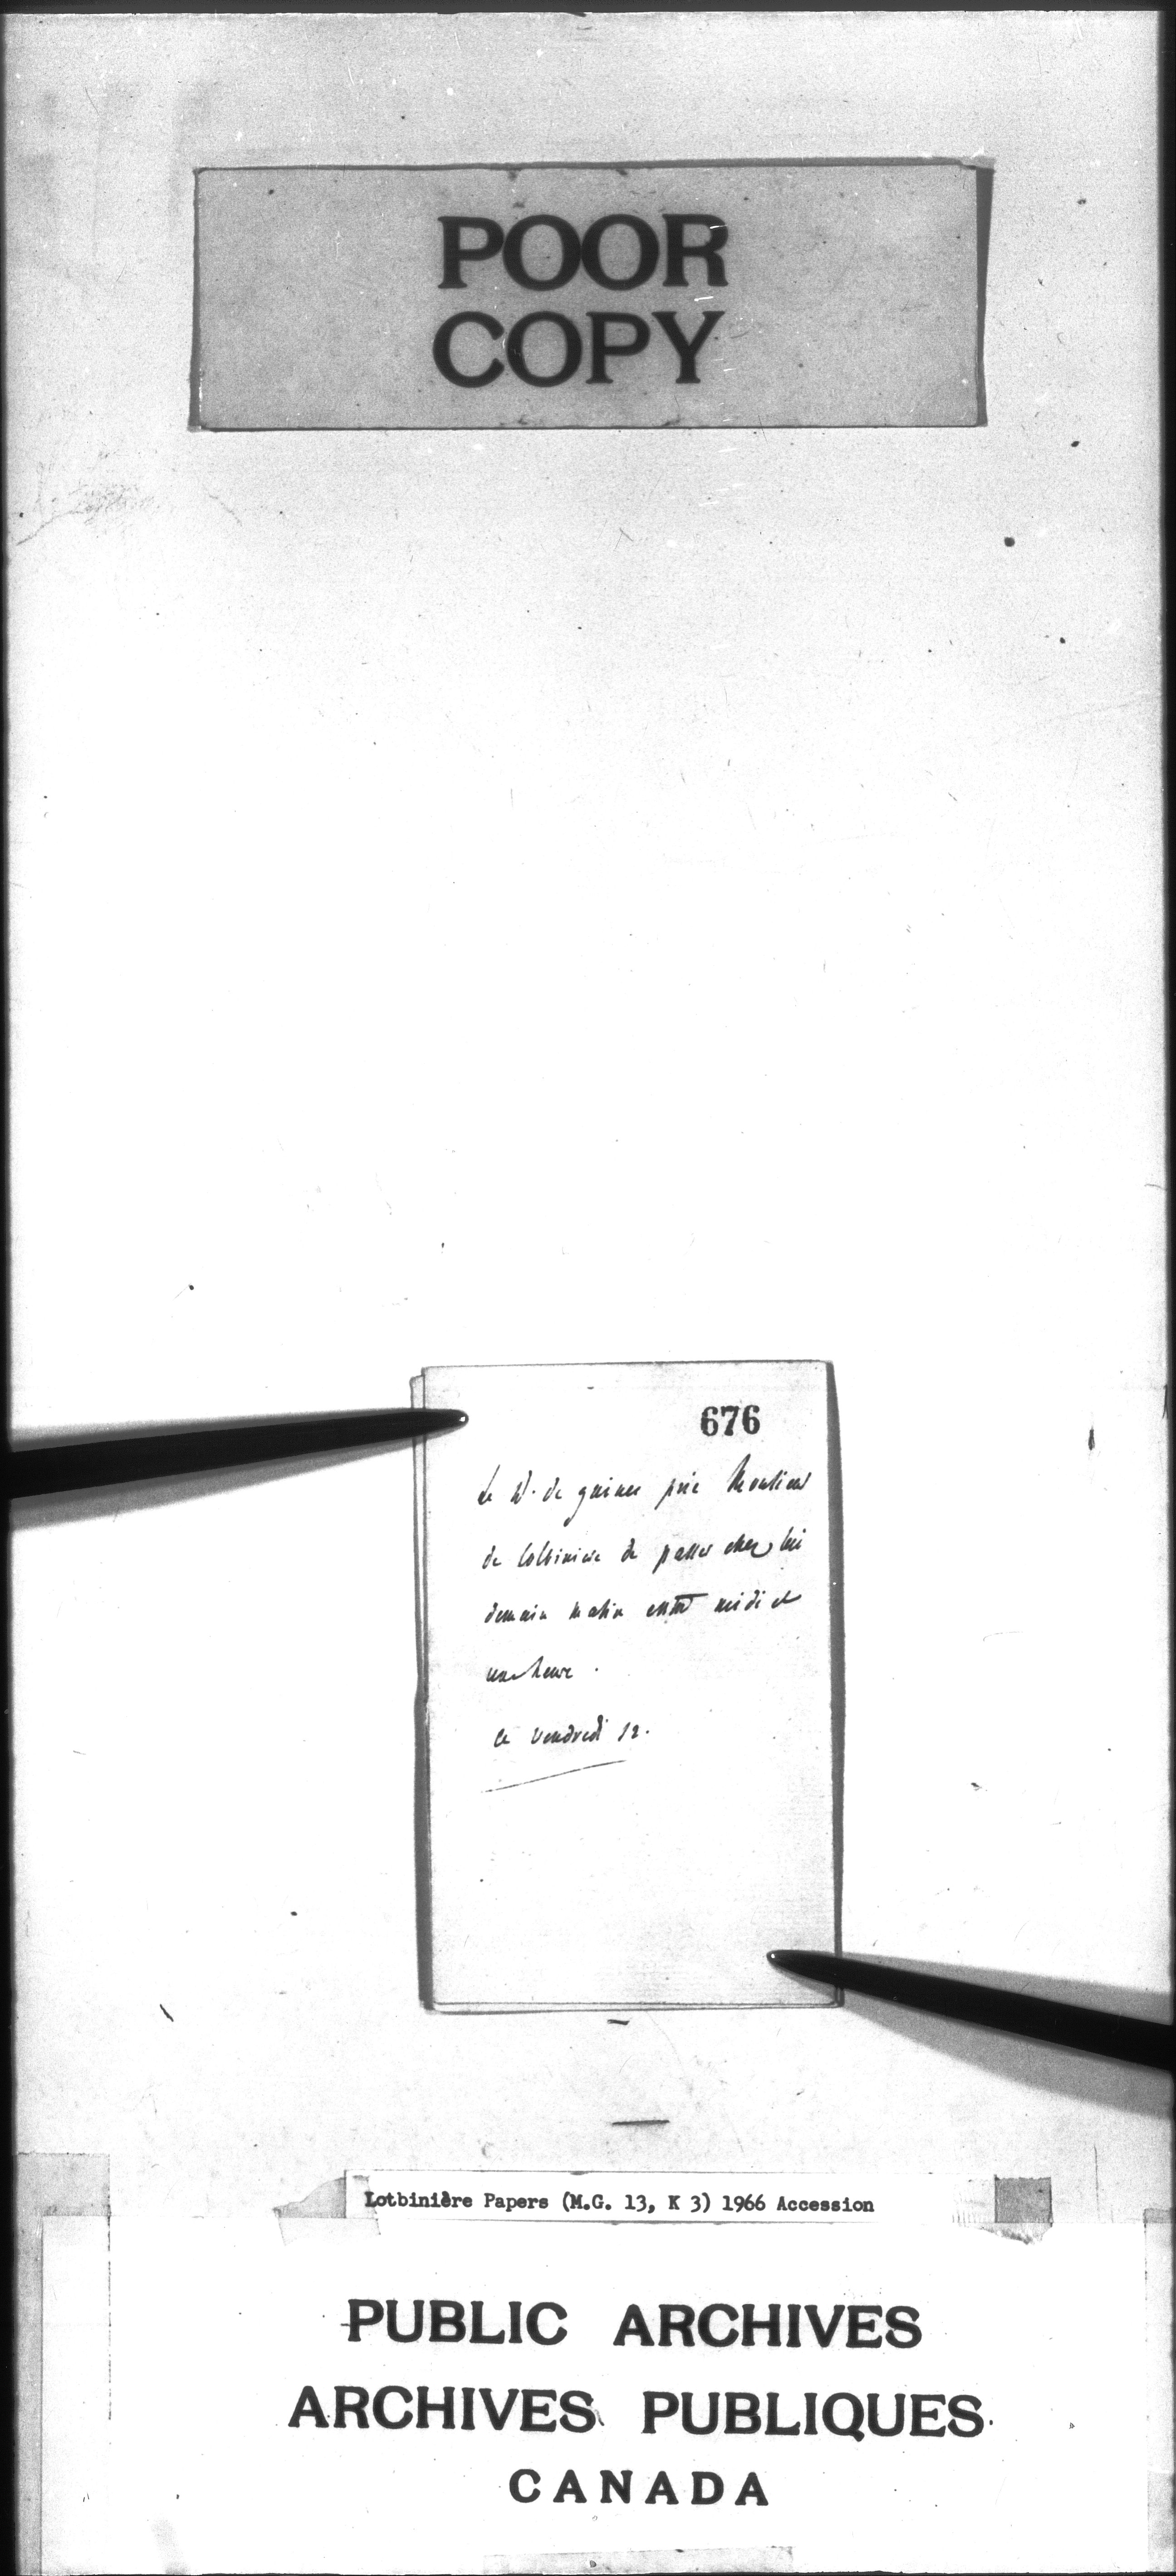 POOR
COPY
676
Le D. de guines prie Monsieur
de lotbiniere de passer chez lui
demain matin entre midi et
une heure.
ce vendredi 12.
Lotbinière Papers (M.G. 13, K 3) 1966 Accession
PUBLIC ARCHIVES
ARCHIVES PUBLIQUES
CANADA